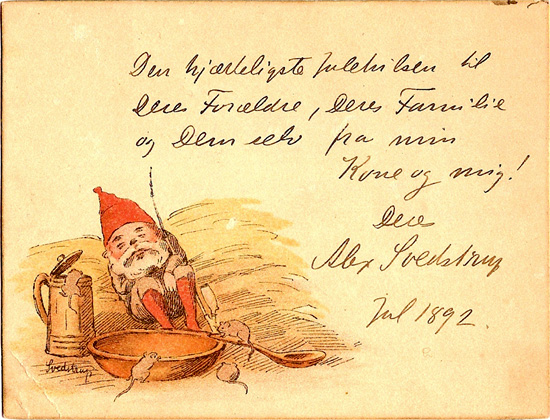 Den hjærteligste Julehilsen til
Deres Forældre, Deres Familie
og Dem selv fra min
Kone og mig!
Deres
Alex Svedstrup
Jul 1892.
Svedstrup